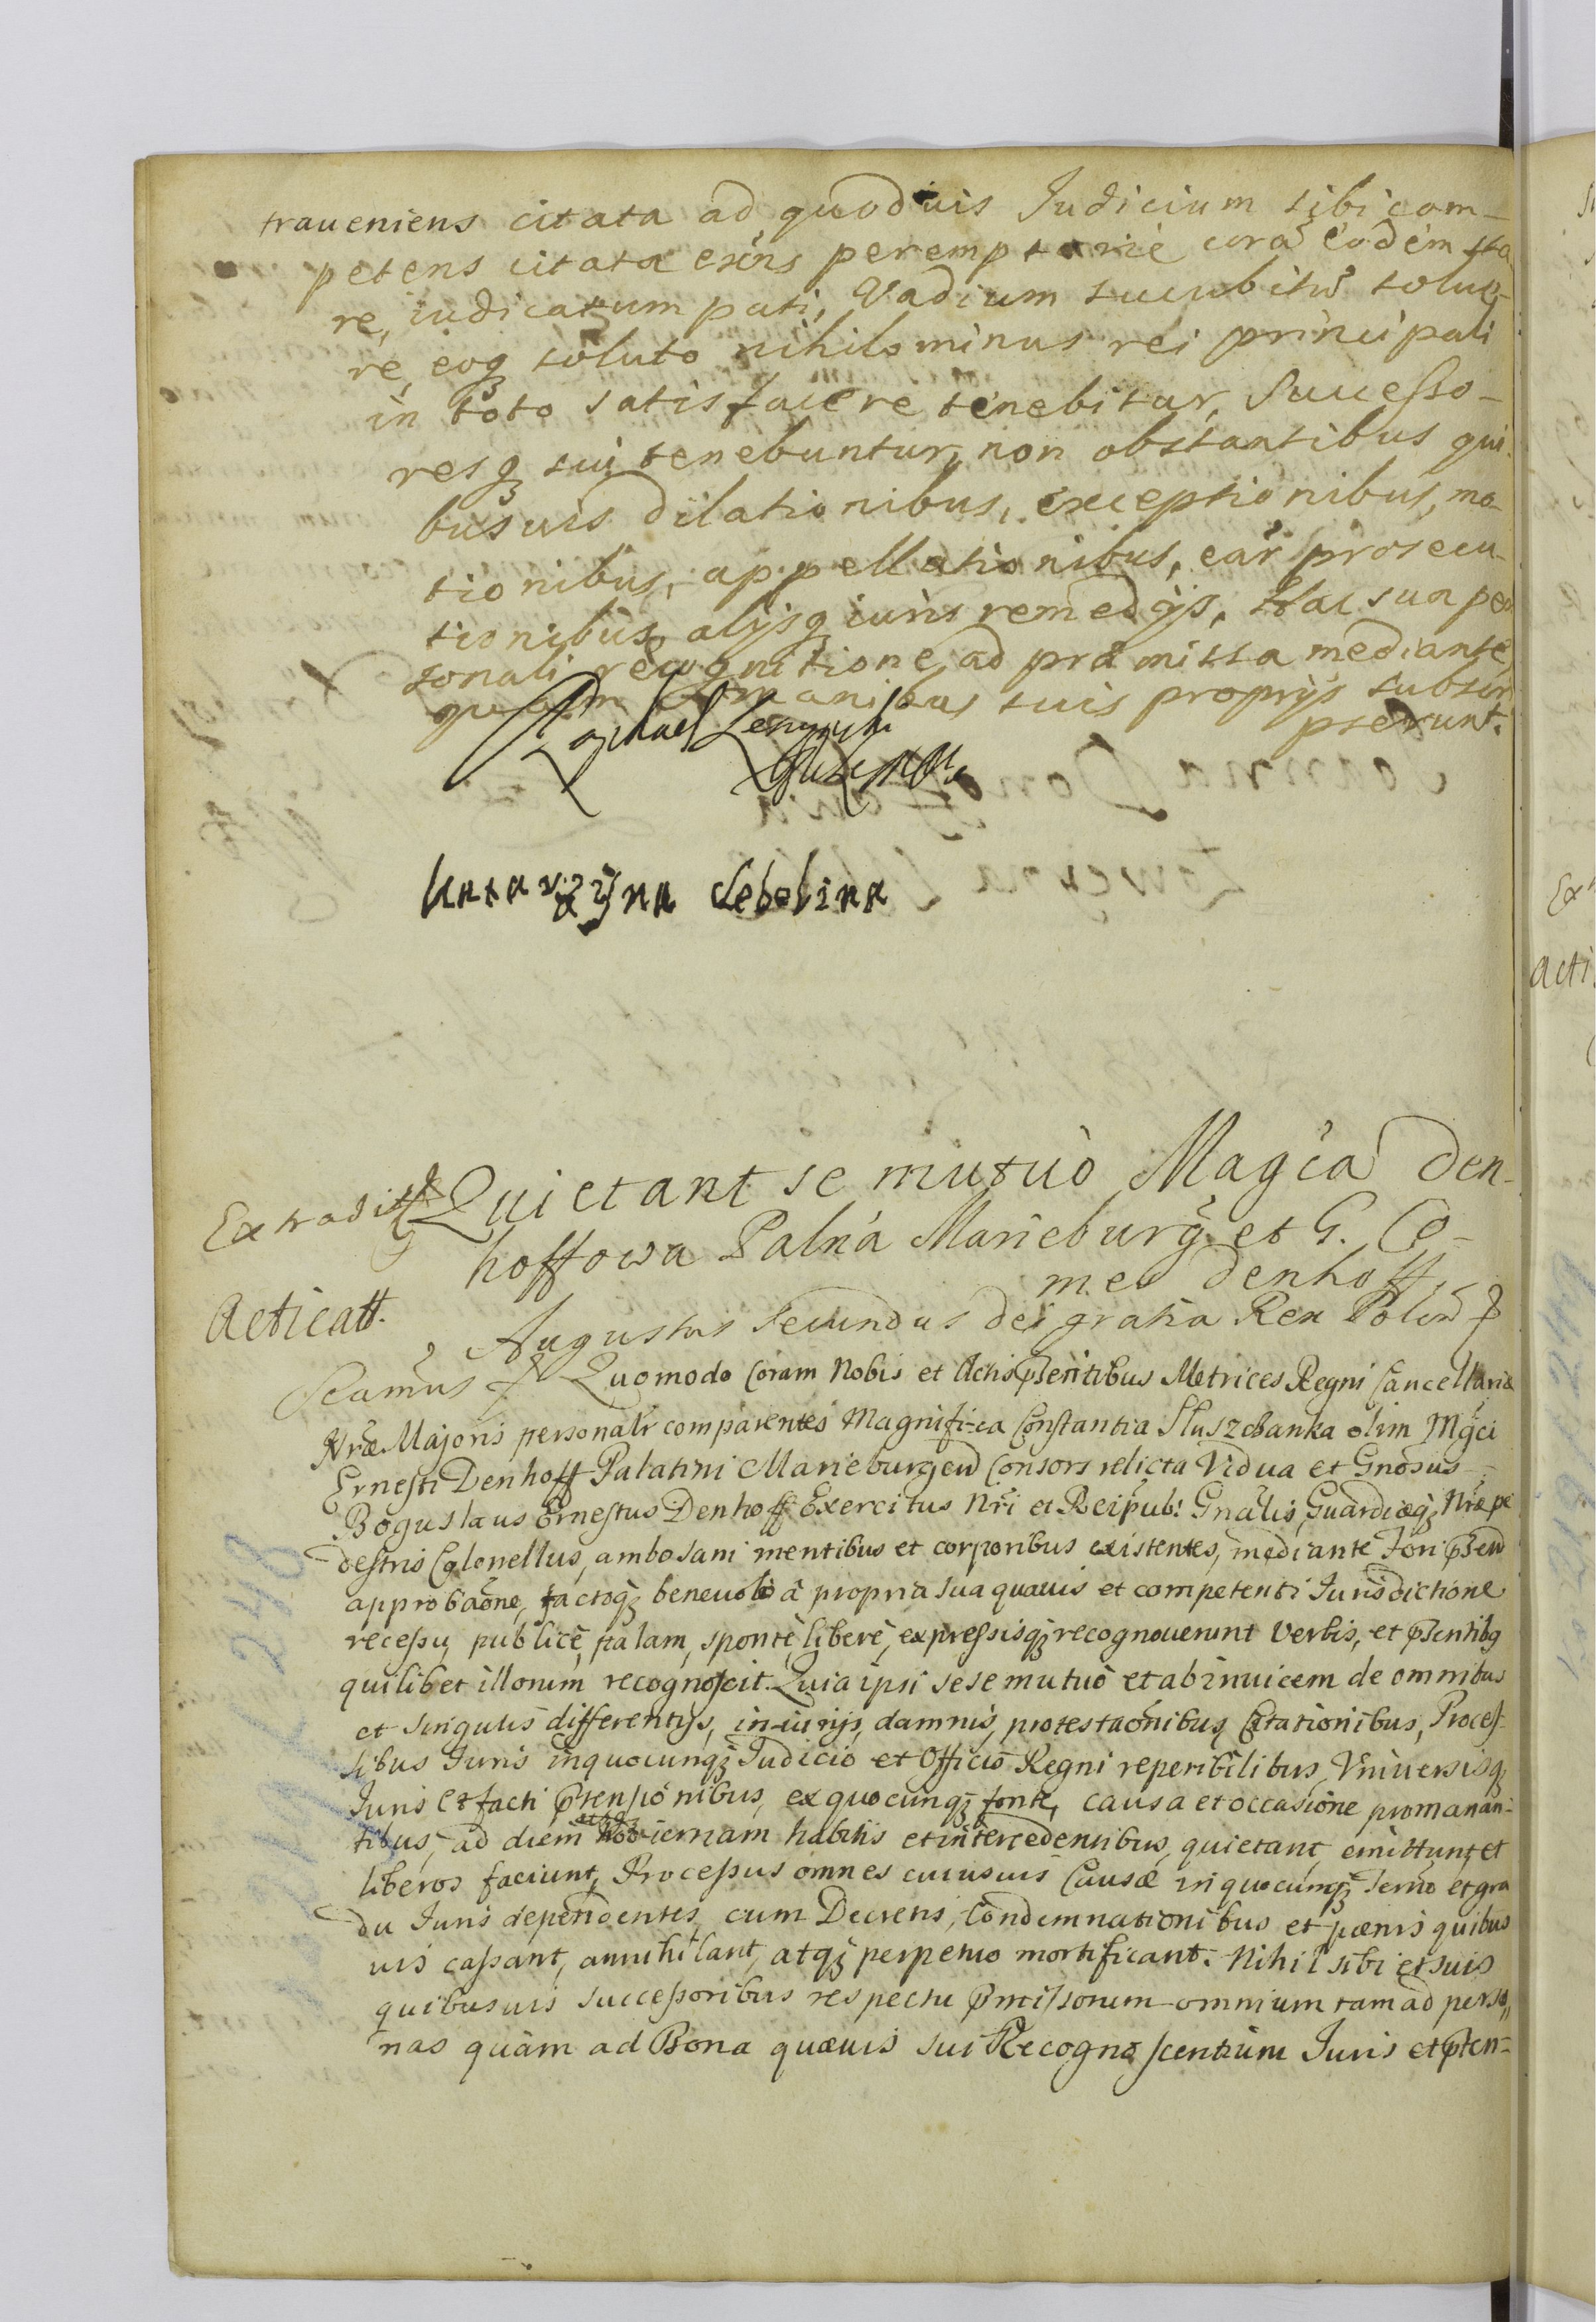 traueniens citata ad quoduis Iudicium sibi com-
petens citata exñs peremptorie corã eodem sta
re, iudicatum pati, Vadium succubitũ solue-
re, eoq3 soluto nihilominus rei principali
in toto satisfacere tenebitur, Successo-
resq3 sui tenebuntur, non obstantibus qui-
busuis dilationibus, exceptionibus, mo-
tionibus, appellationibus, eaȓ prosecu-
tionibus alijsq3 iuris remedijs. Hac sua per
sonali recognitione ad præmissa mediante,
quam manibus suis proprijs subscri
pserunt.
Katarzÿna
Extradit
Quietant se mutuò Magc̃a Den-
hoffowa Palnã Marieburg̃ et G. Co-
mes Denhoff
Acticatt.
Augustus Secundus dei gratia Rex Polon̄
Scamus Quomodo Coram Nobis et Actis p̃sentibus Metrices Regni Cancellariæ
Nr̃æ Majoris personalr̃ comparentes Magnifica Constantia Sluszchanka olim Mg̃ci
Ernesti Denhoff Palatini Marieburgen̄ Consors relicta Vidua et Gnõsus
Boguslaus Ernestus Denhoff Exercitus Nr̃i et Reipub: Gnãlis, Guardiæq3 Nr̃æ pe
destris Colonellus, ambo sani mentibus et corporibus existentes, mediante Fori p̃sen̄
approbãone, factoq3 beneuolè à propria sua quauis et competenti Iurisdictione
recessu, publicè, palam, spontè, liberè, expressisq3 recognouerunt Verbis, et p̃sentibq
quilibet illorum recognoscit. Quia ipsi sese mutuò et ab inuicem de omnibus
et singulis differentijs, iniurijs, damnis, protestaõnibus, Citationibus, Proces-
sibus Iuris in quocunq3 Iudicio et Officio Regni reperibilibus, Vniuersisq3
Iuris et facti p̃tensiõnibus, ex quocunq3 fonte, causa et occasione promanan-
tibus, ad diem hodiernam habitis et intercedentibus, quietant, emittunt, et
liberos faciunt, Processus omnes cuiusuis Causæ in quocunq3 Termõ et gra
du Iuris dependentes, cum Decretis, Condemnationibus et pœnis quibus
uis cassant, annihilant, atq3 perpetuo mortificant. Nihil sibi et suis
quibusuis successoribus respectu p̃missorum omnium tam ad perso„
nas quàm ad Bona quæuis sui Recognoscentium Iuris et p̃ten-